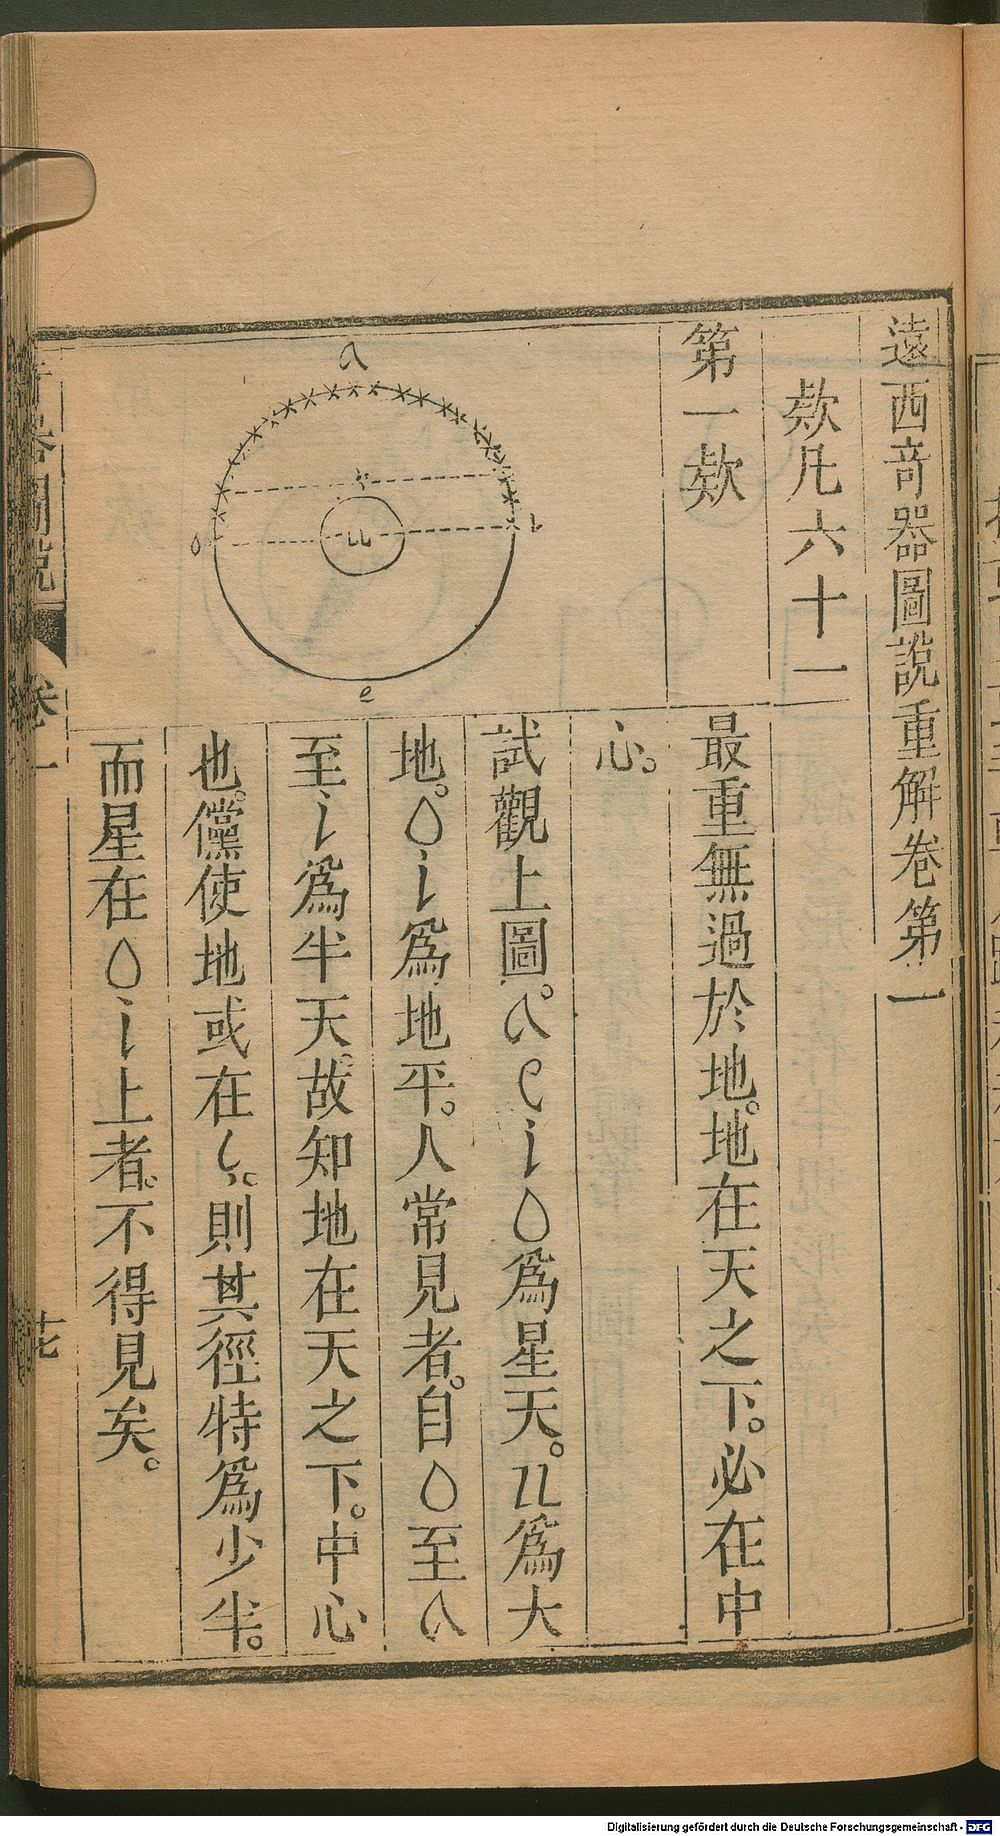 遠西奇器圖說重解卷第一
款凡六十一
第一款
最重無過於地。地在天之下。必在中
心。
試觀上圖。a e i o 爲星天。u 爲大
地。o i 爲地平。人常見者。自 o 至 a
至 i 爲半天。故知地在天之下。中心
也。儻使地或在 。則其徑特爲少半。
而星在 o i 上者。不得見矣。
a
o
i
u
e
奇器圖說
卷一
Digitalisierung gefördert durch die Deutsche Forschungsgemeinschaft - DFG